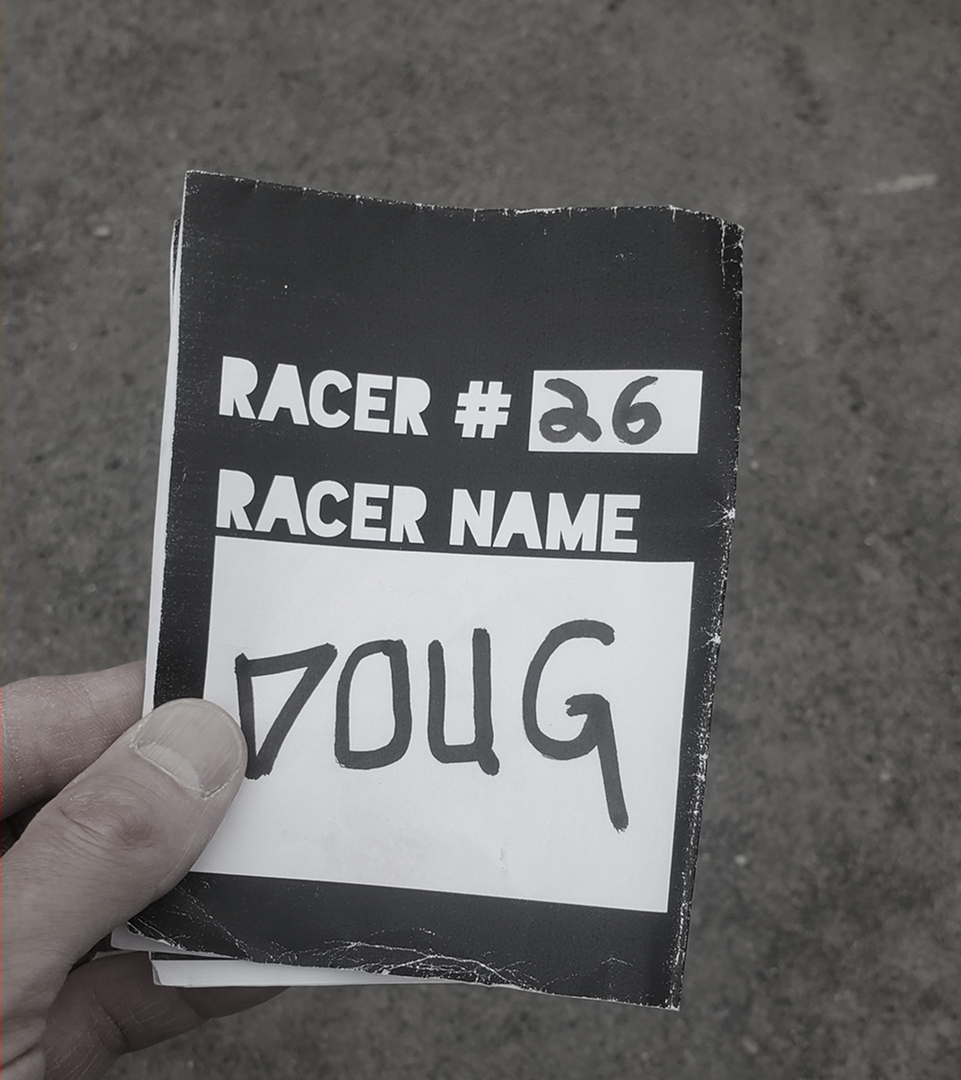 RACER # 26
RACER NAME
DOUG